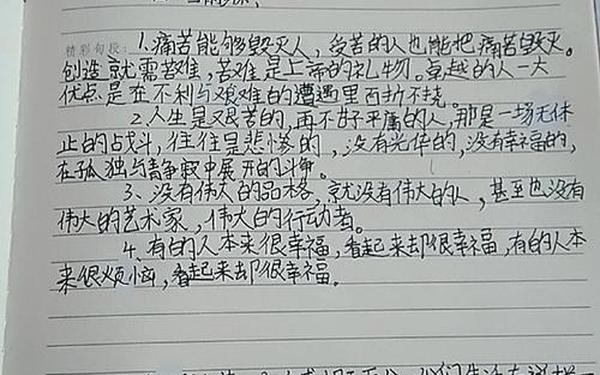 精彩句段:1.痛苦能够毁灭人,受苦的人也能把痛苦毁灭。
创造就需苦难,苦难是上帝的礼物。卓越的人一大
优点是在不利与艰难的遭遇里百折不挠。
2.人生是艰苦的,再不甘平庸的人,那是一场无休
止的战斗,往往是悲惨的,没有光华的,没有幸福的,
在孤独与静寂中展开的斗争。
3、没有伟大的品格,就没有伟大的人,甚至也没有
伟大的艺术家,伟大的行动者。
4、有的人本来很幸福,看起来却很幸福,有的人本
来很烦恼,看起来却很幸福。